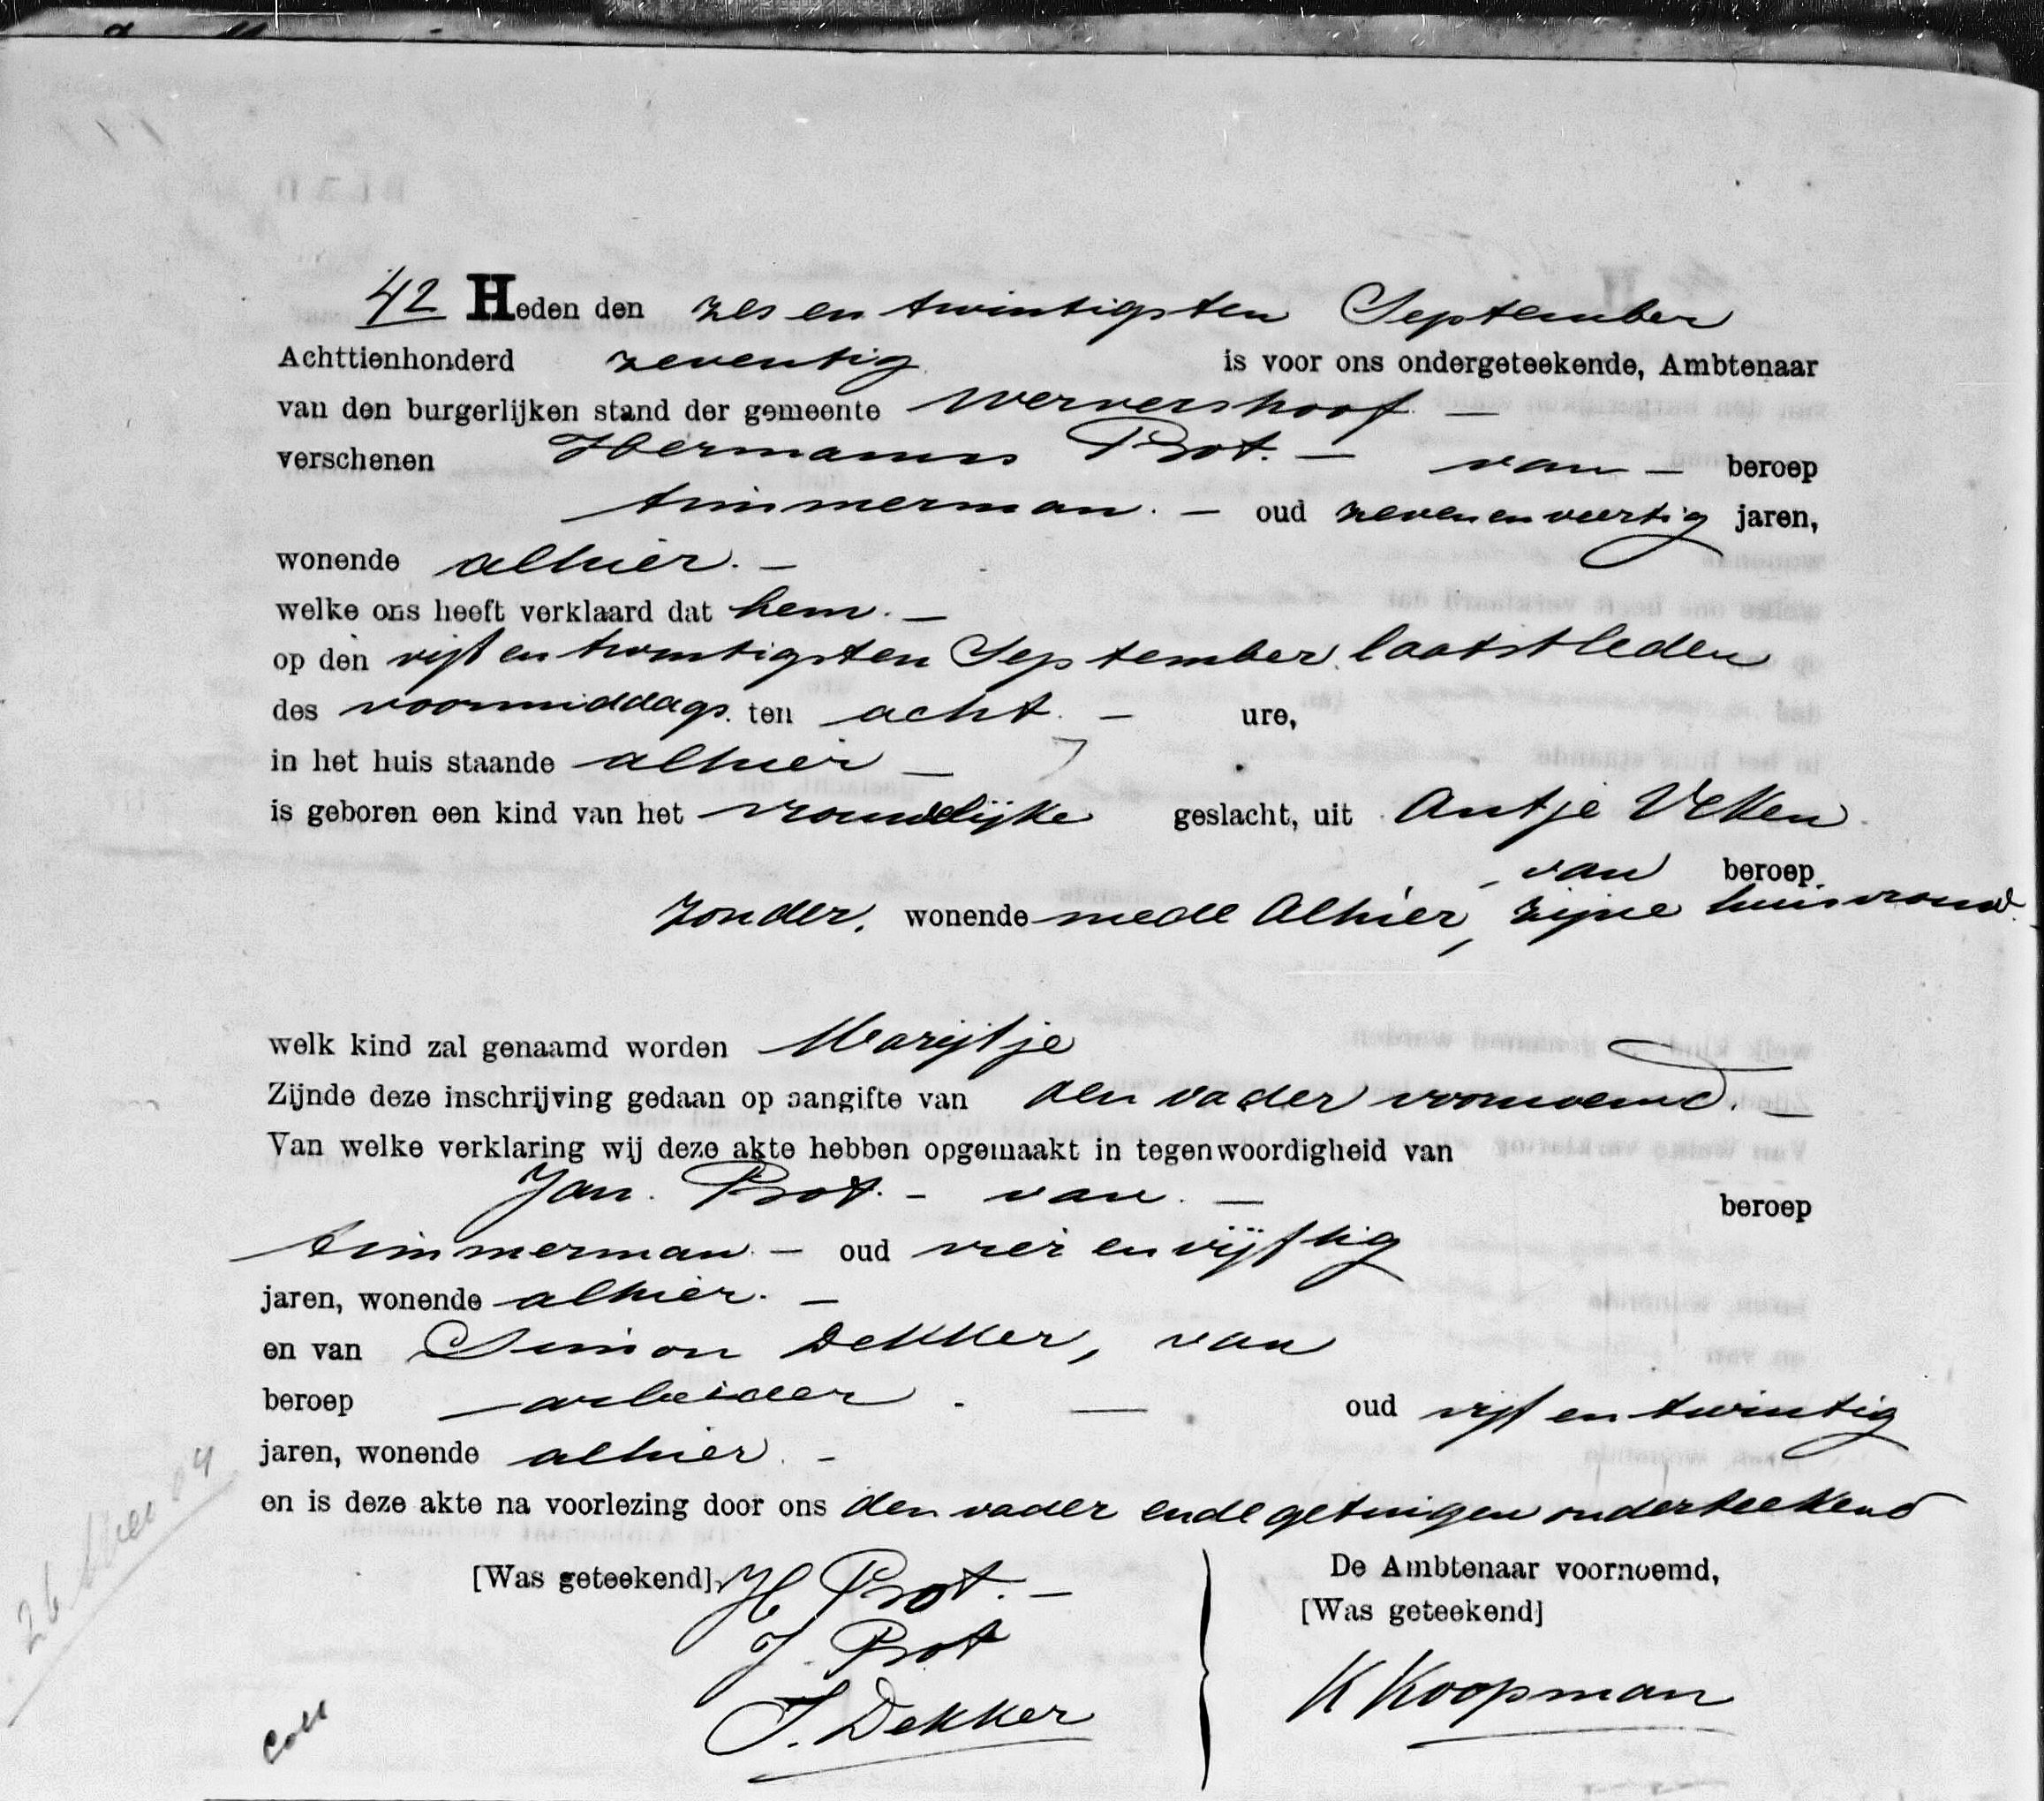 42 Heden den zes en twintigsten September
Achttienhonderd zeventig is voor ons ondergeteekende, Ambtenaar
van den burgerlijken stand der gemeente Wervershoof. —
verschenen Hermanus Prot. — van — beroep
timmerman. — oud zeven en veertig jaren,
wonende alhier. —
welke ons heeft verklaard dat hem. —
op den vijf en twintigsten September laatstleden
des voormiddags ten acht. — ure,
in het huis staande alhier —
is geboren een kind van het vrouwelijke geslacht, uit Antje
van beroep
zonder, wonende mede Alhier, zijne huisvrouw.
welk kind zal genaamd worden Marijtje
Zijnde deze inschrijving gedaan op aangifte van den vader voornoemd. —
Van welke verklaring wij deze akte hebben opgemaakt in tegenwoordigheid van
Jan. Prot. - van. — beroep
timmerman. — oud vier en vijftig
jaren, wonende alhier. —
en van Simon Dekker, van
beroep arbeider. — oud vijf en twintig
jaren, wonende alhier. -
en is deze akte na voorlezing door ons den vader en de getuigen onderteekend
[Was geteekend], H Prot. —
J. Prot
S. Dekker
De Ambtenaar voornoemd,
[Was geteekend]
K Koopman
26 04
Coll